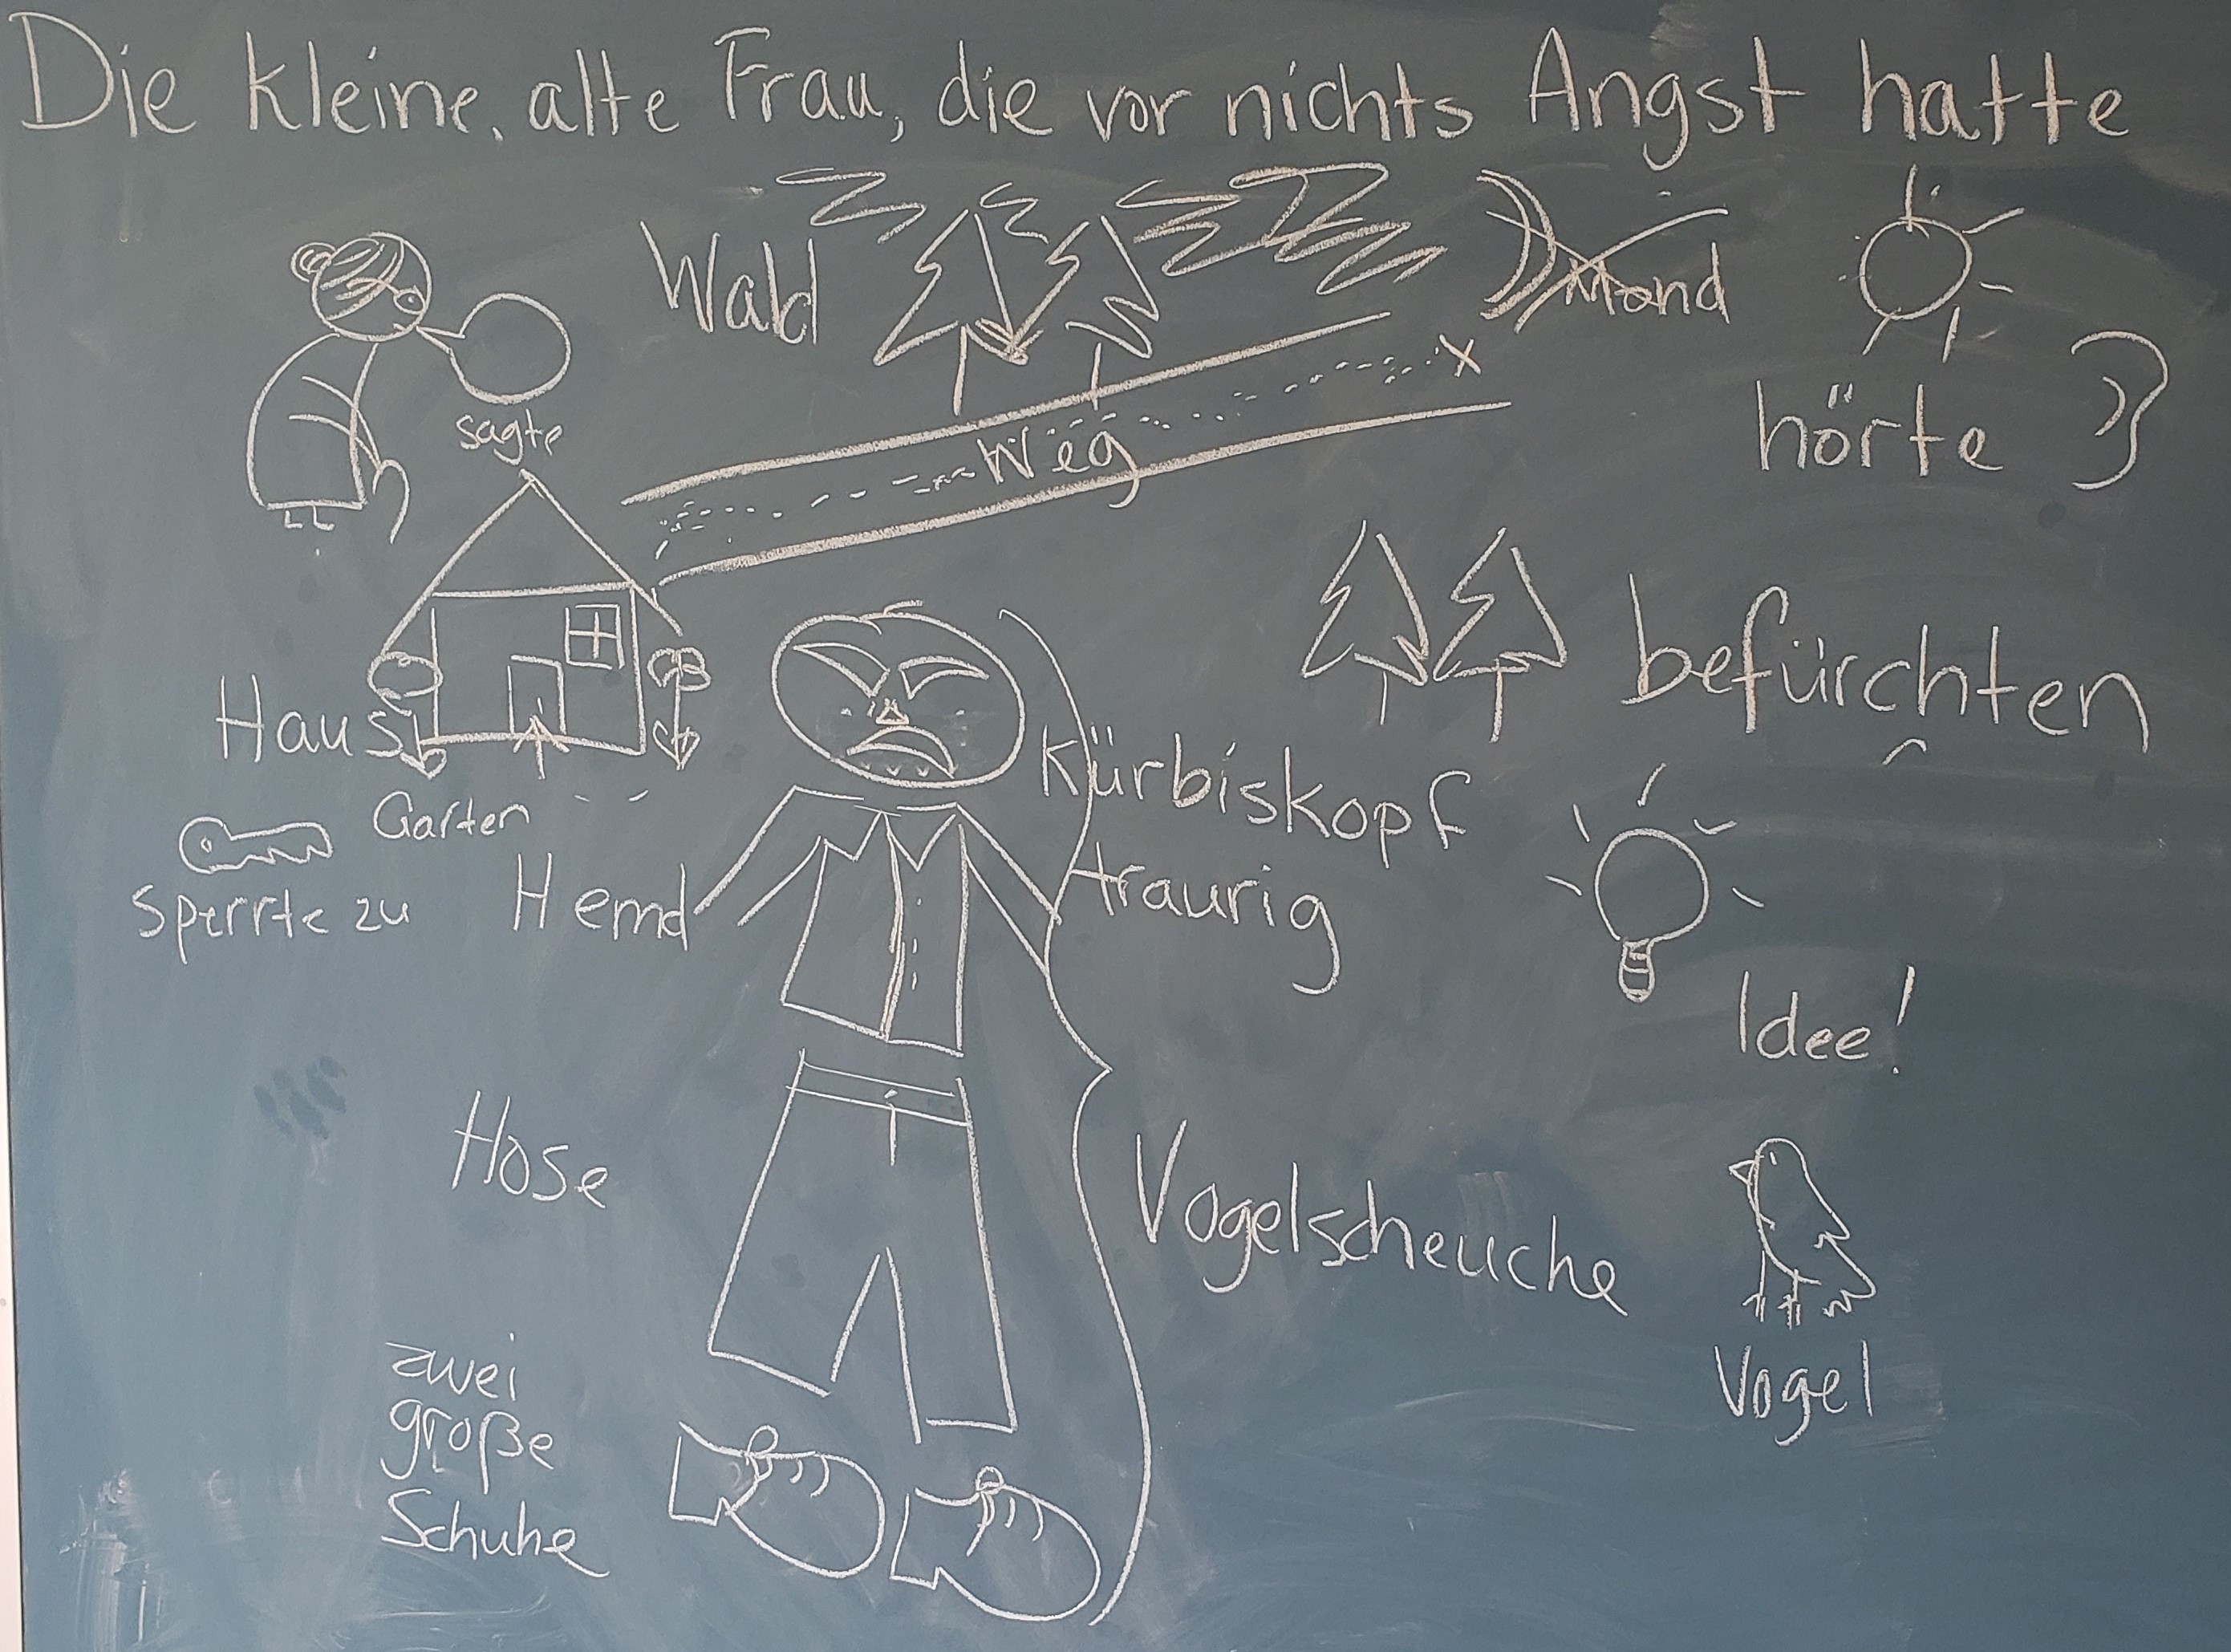 Die kleine, alte Frau, die vor nichts Angst hatte
Wald
Mond
sagte
Weg
hörte
befürchten
Haus
Kürbiskopf
Garten
sperrte zu
Hemd
traurig
Idee!
Hose
Vogelscheuche
Vogel
zwei
große
Schuhe